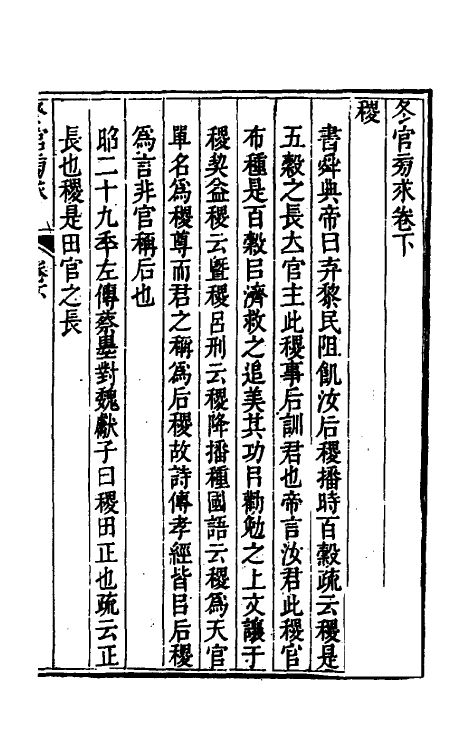 冬官旁求卷下
稷
書舜典帝曰弃黎民阻飢汝后稷播時百穀疏云稷是
五穀之長太官主此稷事后訓君也帝言汝君此稷官
布種是百穀㠯濟救之追美其功㠯勸勉之上文讓于
稷契益稷云暨稷呂刑云稷降播種國語云稷爲天官
單名爲稷尊而君之稱爲后稷故詩傳孝經皆㠯后稷
爲言非官稱后也
昭二十九年左傳蔡墨對魏獻子曰稷田正也疏云正
長也稷是田官之長
冬官旁求 卷下